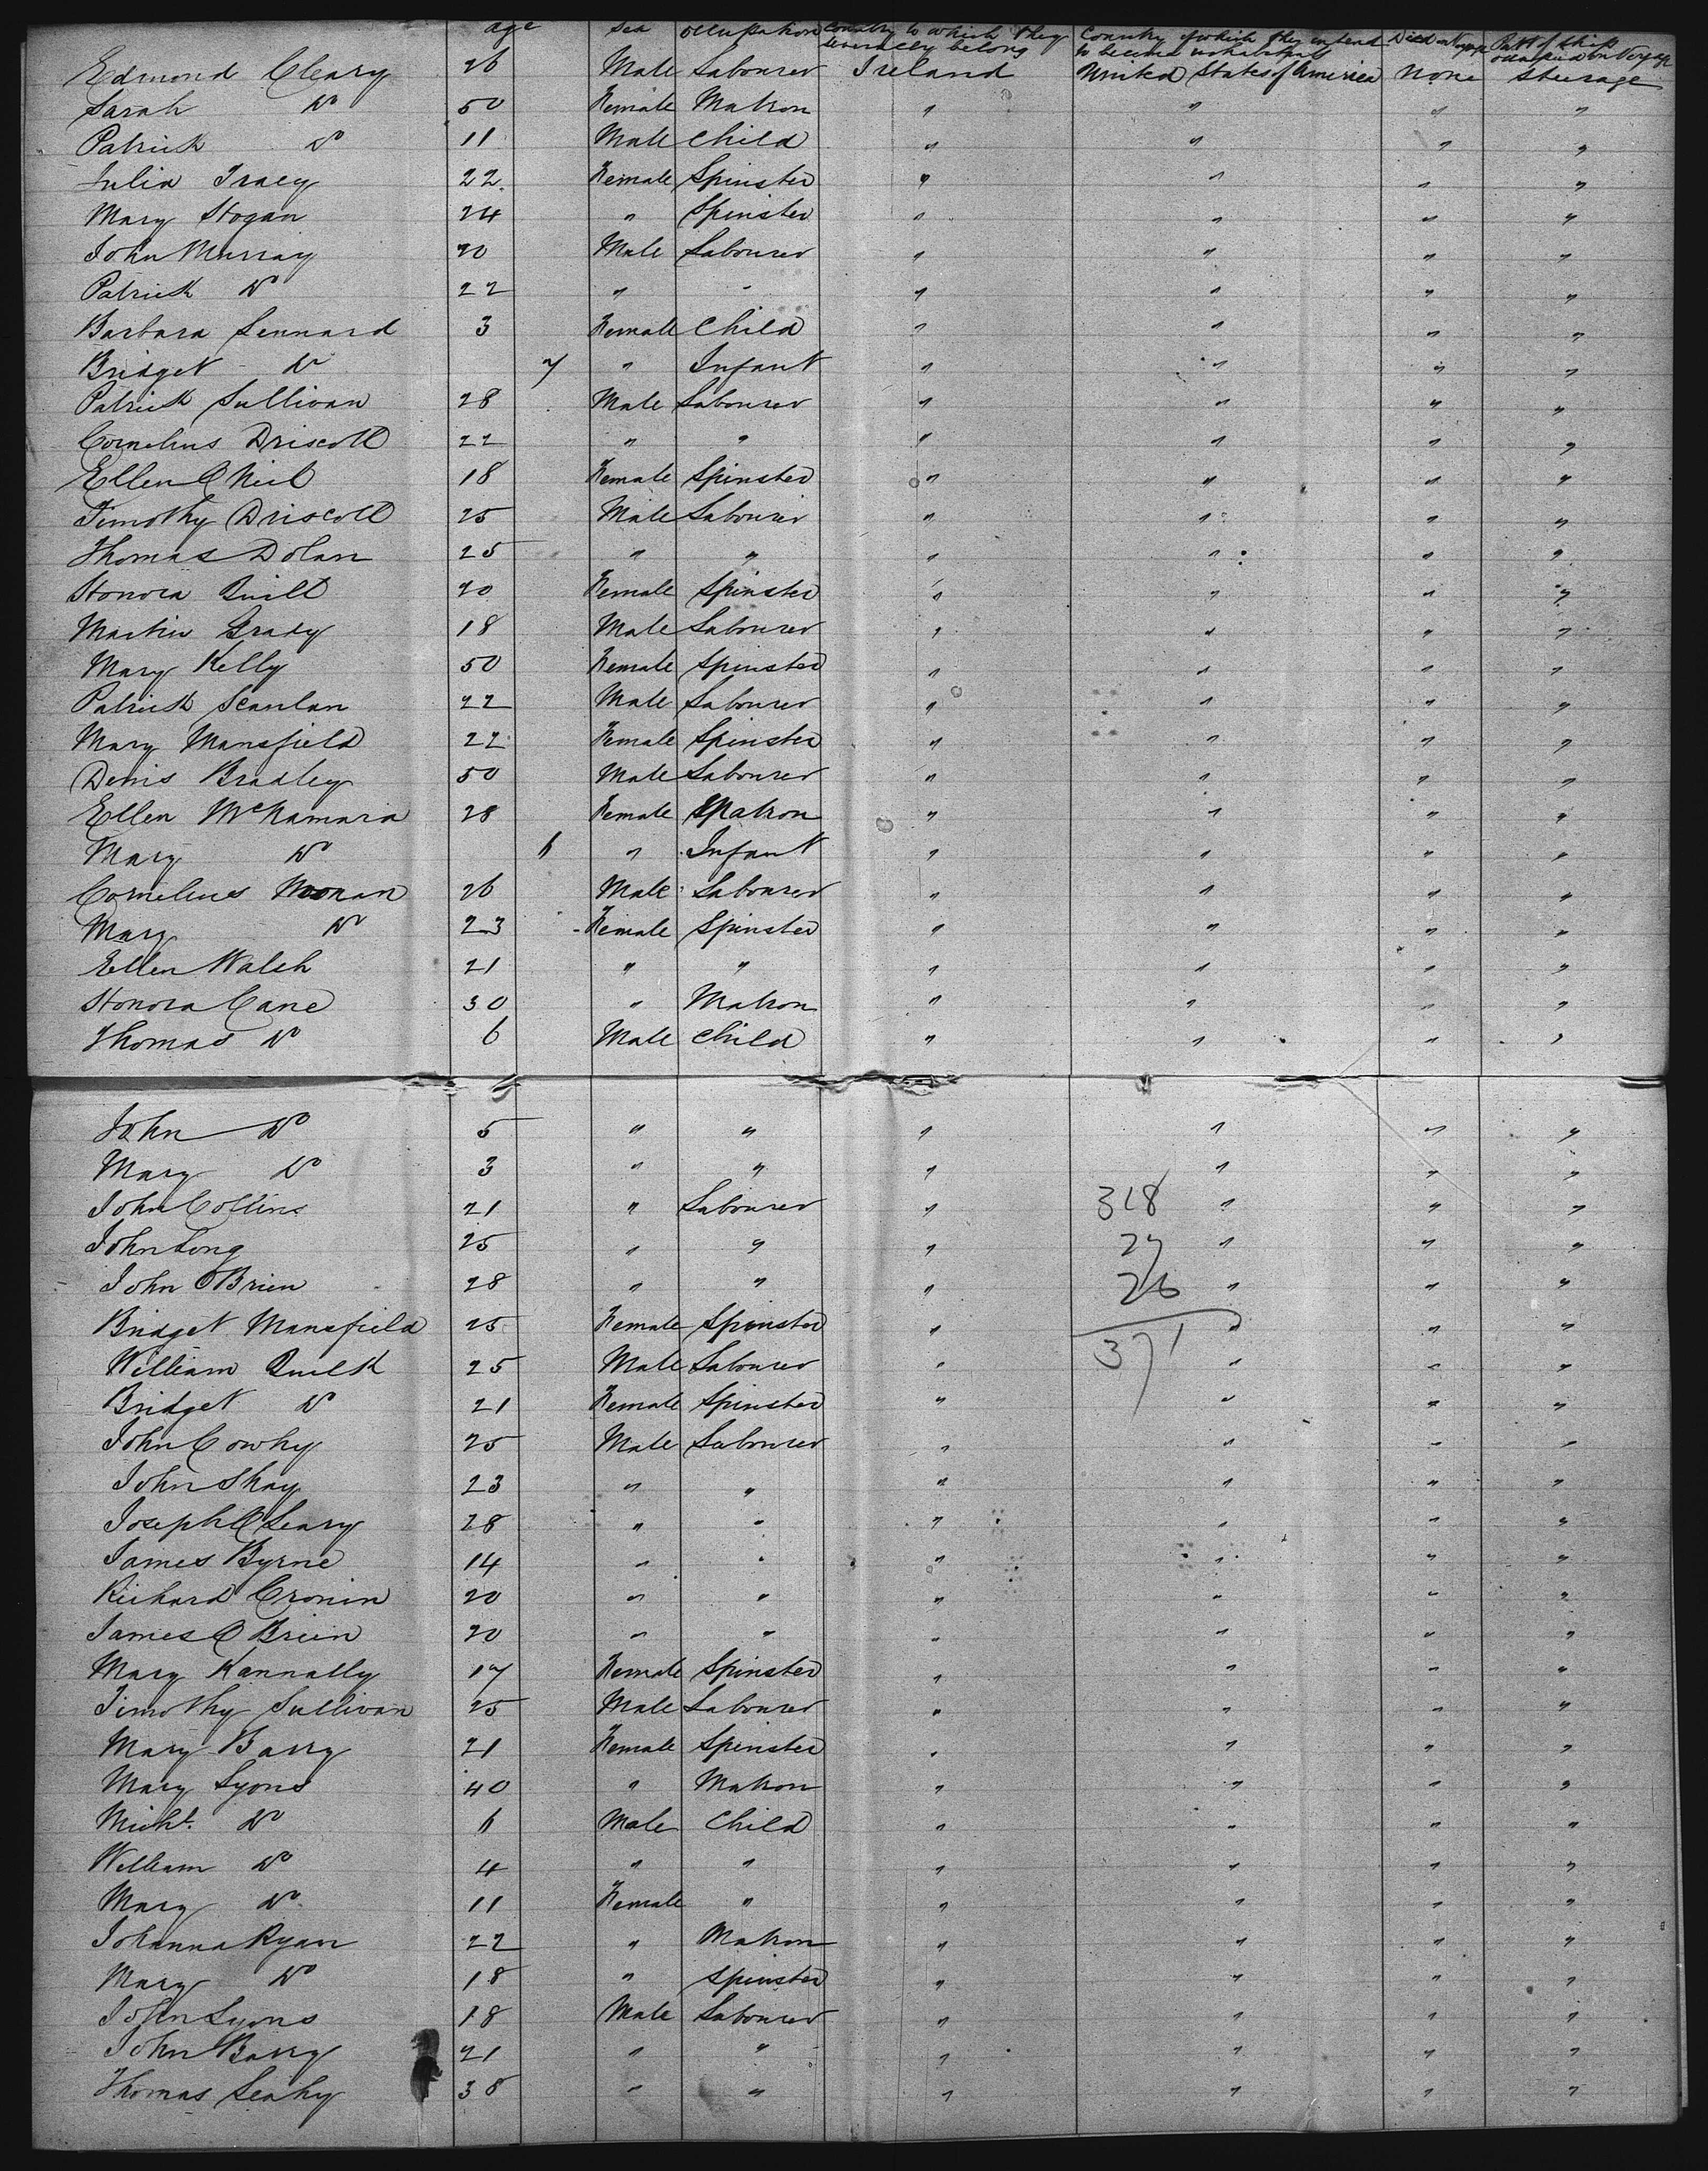 age sex occupation Country to which they severally belong Country of which they intend to become inhabitants Died on Voyage Part of ship occupied on Voyage
Edmond Cleary 26 Male Labourer Ireland United States of America None Steerage
Sarah Do 50 Female Matron " " " "
Patrick Do 11 Male Child " " " "
Julia Tracy 22 Female Spinster " " " "
Mary Hogan 24 " Spinster " " " "
John Murray 20 Male Labourer " " " "
Patrick Do 22 " " " " " "
Barbara Lennard 3 Female Child " " " "
Bridget Do 7 " Infant " " " "
Patrick Sullivan 28 Male Labourer " " " "
Cornelius Driscoll 22 " " " " " "
Ellen O Neil 18 Female Spinster " " " "
Timothy Driscoll 25 Male Labourer " " " "
Thomas Dolan 25 " " " " " "
Honora Quill 20 Female Spinster " " " "
Martin Grady 18 Male Labourer " " " "
Mary Kelly 50 Female Spinster " " " "
Patrick Scanlan 22 Male Labourer " " " "
Mary Mansfield 22 Female Spinster " " " "
Denis Bradley 50 Male Labourer " " " "
Ellen McNamara 28 Female Matron " " " "
Mary Do 6 " Infant " " " "
Cornelius Noonan 26 Male Labourer " " " "
Mary Do 23 Female Spinster " " " "
Ellen Walsh 21 " " " " " "
Honora Cane 30 " Matron " " " "
Thomas Do 6 Male Child " " " "
John Do 5 " " " " " "
Mary Do 3 " " " " " "
John Collins 21 " Labourer " 318 " " "
John Long 25 " " " 27 " " "
John O Brien 28 " " " 26 " " "
Bridget Mansfield 25 Female Spinster " " " "
William Quilk 25 Male Labourer " 371 " " "
Bridget Do 21 Female Spinster " " " "
John Cowhy 25 Male Labourer " " " "
John Shay 23 " " " " " "
Joseph O Leary 28 " " " " " "
James Byrne 14 " " " " " "
Richard Cronin 20 " " " " " "
James O Brien 20 " " " " " "
Mary Kannally 17 Female Spinster " " " "
Timothy Sullivan 25 Male Labourer " " " "
Mary Barry 21 Female Spinster " " " "
Mary Lyons 40 " Matron " " " "
Michl. Do 6 Male Child " " " "
William Do 4 " " " " " "
Mary Do 11 Female " " " " "
Johanna Ryan 22 " Matron " " " "
Mary Do 18 " Spinster " " " "
John Lyons 18 Male Labourer " " " "
John Barry 21 " " " " " "
Thomas Leahy 38 " " " " " "